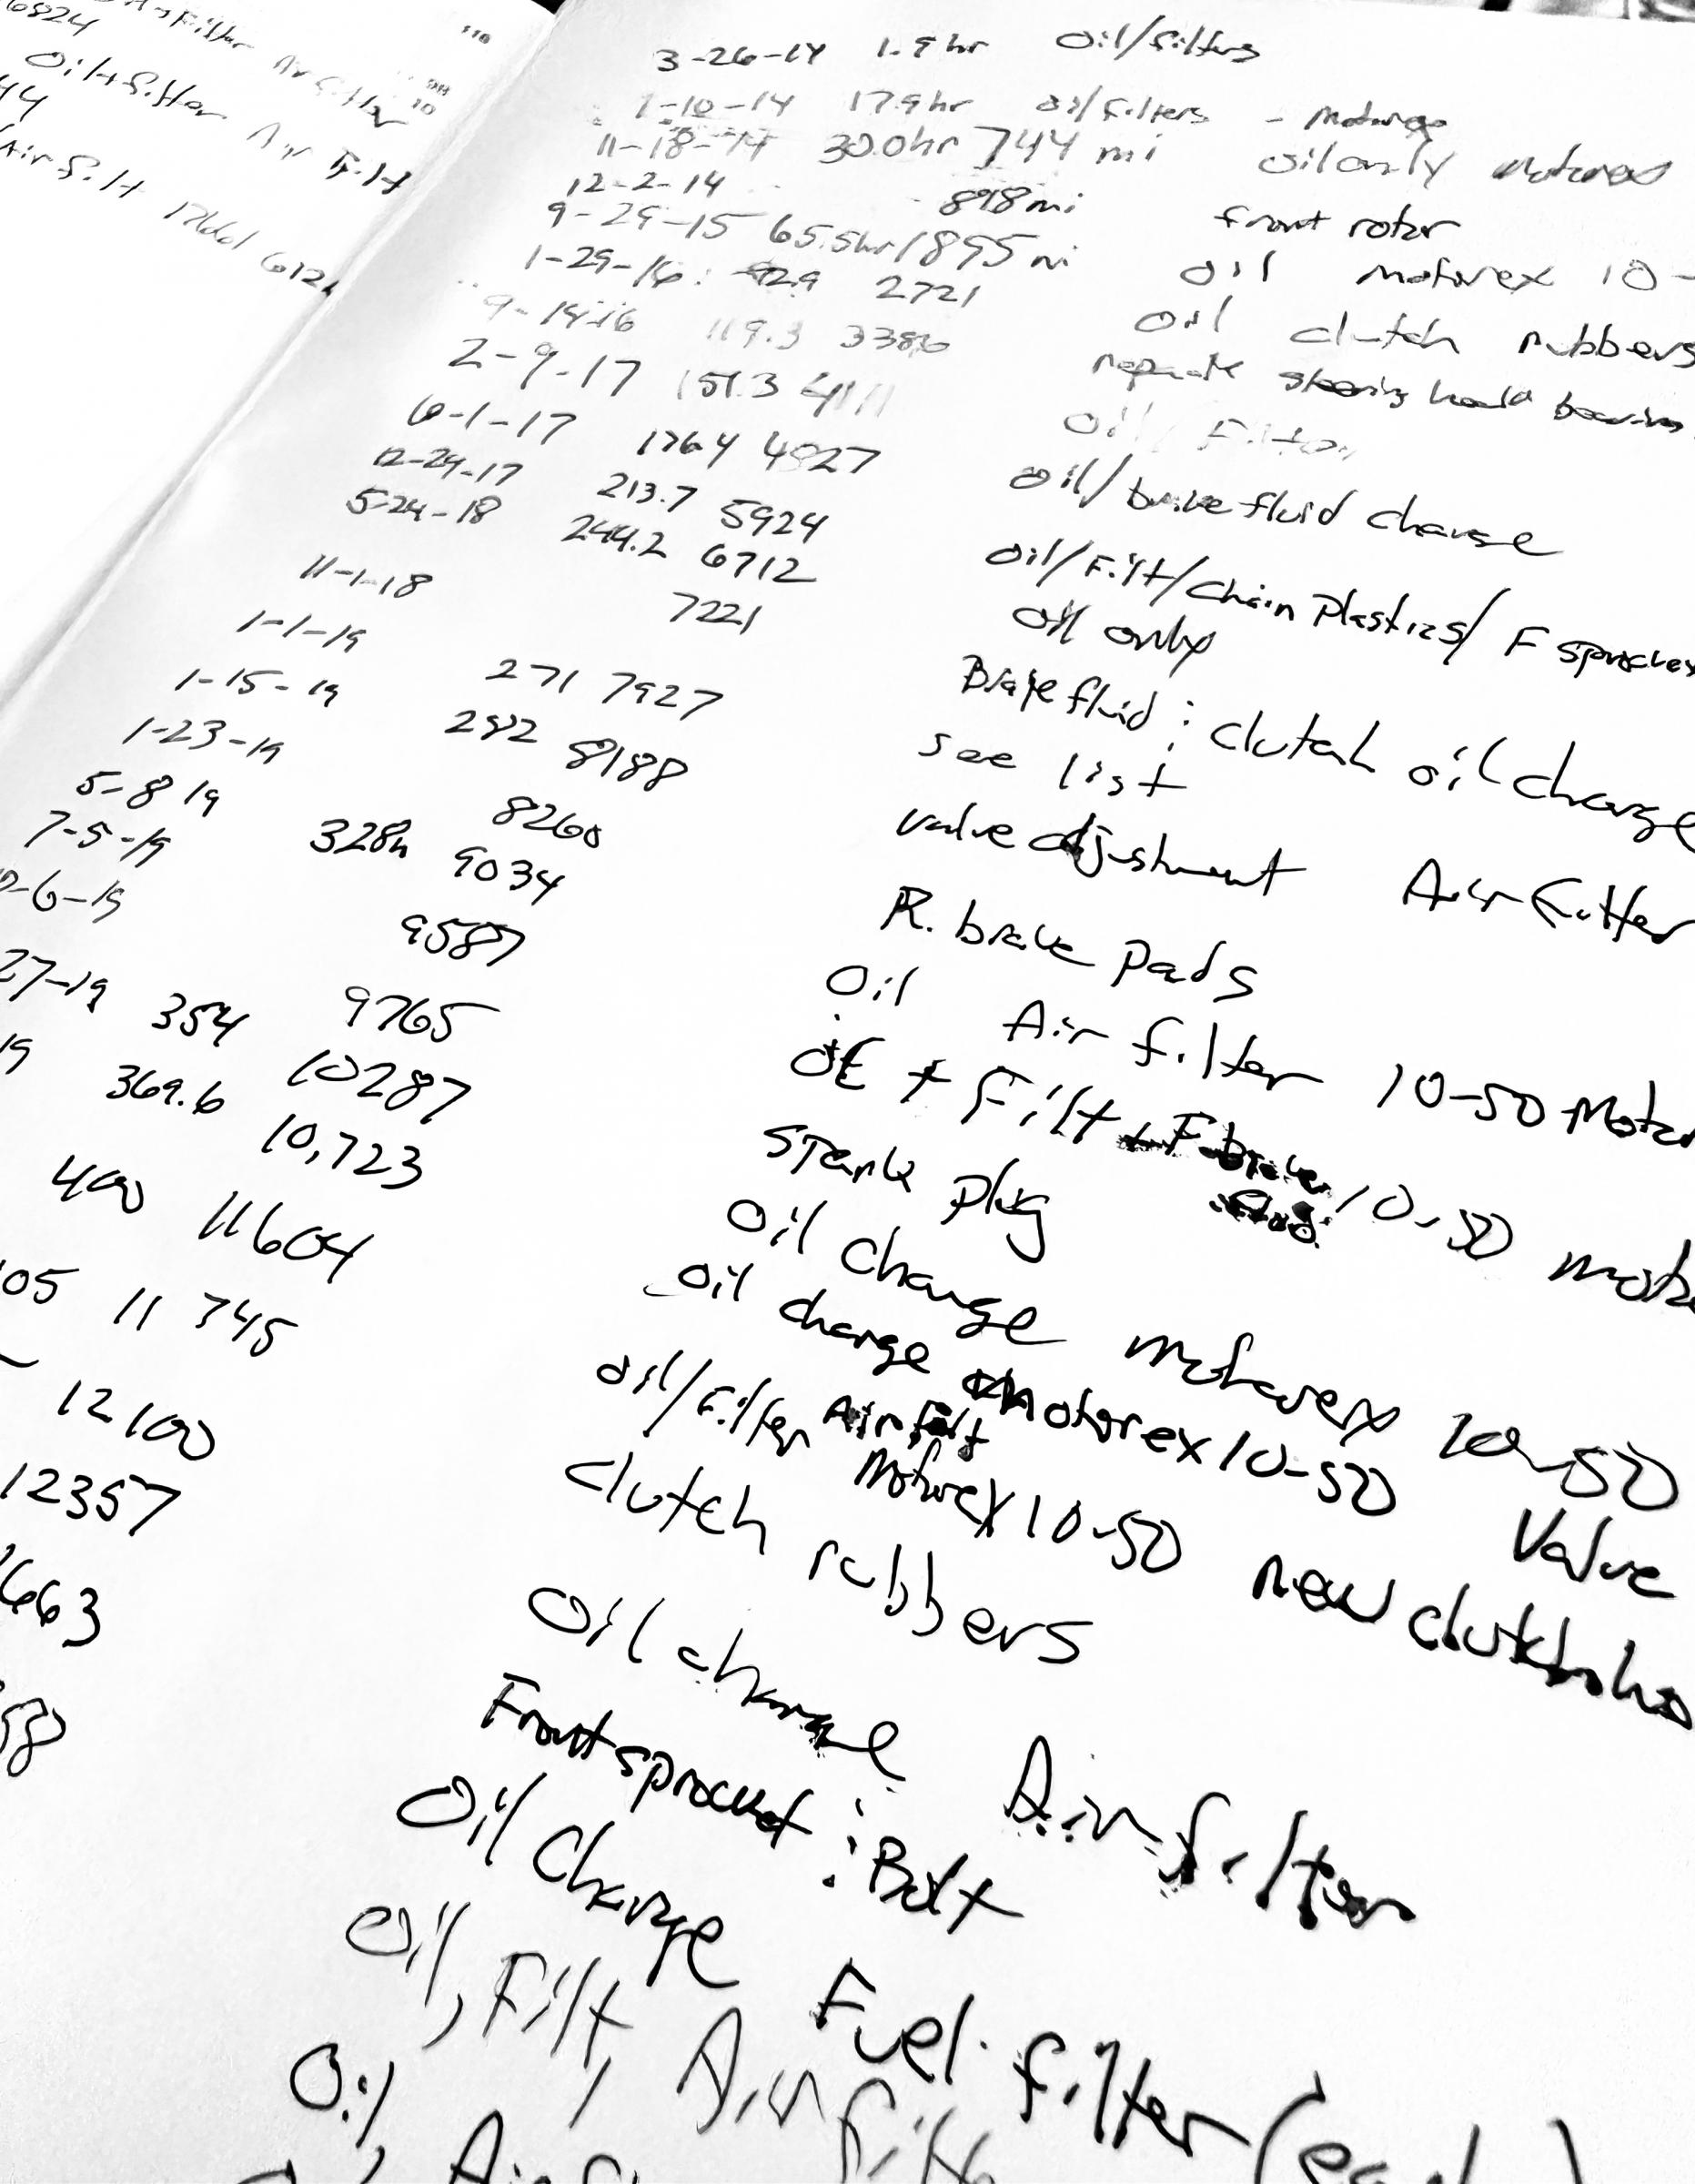 6824 Air Filter
Oil + filter Air Filt
44
Air filt 17661 612
3-26-14 1.9hr Oil/filters
7-10-14 17.9hr oil/filters - Motorex
11-18-14 30.0hr 744 mi oil only Motorex
12-2-14 898mi front rotor
9-29-15 65.5hr 1895 mi oil Motorex 10-
1-29-16 92.9 2721 oil clutch rubbers
9-14-16 119.3 3386 repack steering head bearin
2-9-17 151.3 4111 oil/Filter
6-1-17 176.4 4827 oil/brake fluid change
12-29-17 213.7 5924 oil/Filt/Chain Plastics/ F sprocket
5-24-18 244.2 6712 oil only
11-1-18 7221 Brake fluid : clutch oil change
1-1-19 see list
1-15-19 271 7927 valve adjustment Air Filter
1-23-19 282 8188 R. brake pads
5-8 19 8260 Oil Air filter 10-50 Motor
7-5-19 328h 9034 + Filt 10-50 moto
-6-19 9587 spark plug
27-19 354 9765 oil change motorex 10-50
19 369.6 10287 oil change Motorex 10-50 Valve
10,723 oil/Filter Air filt Motorex 10-50 new clutch
400 11604 clutch rubbers
05 11 745 Oil change Air filter
12100 Front sprocket : Bolt
12357 Oil Change Fuel filter
663 Oil, Filt, Air filte
58 Oil,